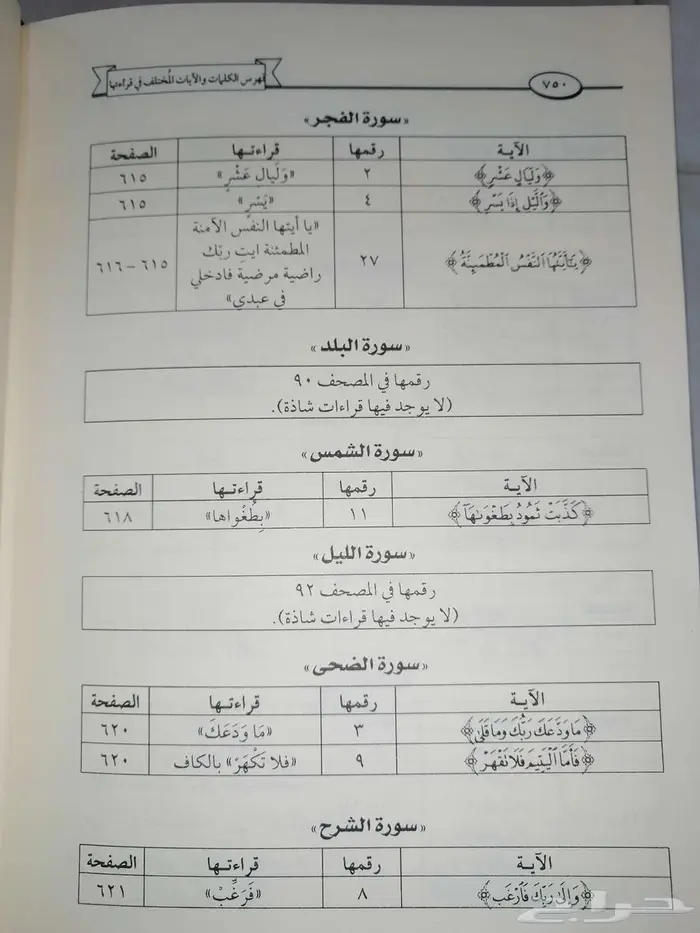 فهرس الكلمات والآيات المُختلف في قراءتها
٧٥٠
«سورة الفجر»
الآيـة رقمها قراءتـها الصفحة
﴿وَلَيَالٍ عَشْرٍ﴾ ٢ «وَلَيالِ عَشْرٍ» ٦١٥
﴿وَٱلَّيْلِ إِذَا يَسْرِ﴾ ٤ «يَسْرٍ» ٦١٥
﴿يَٰٓأَيَّتُهَا ٱلنَّفْسُ ٱلْمُطْمَئِنَّةُ﴾ ٢٧ «يا أيتها النفس الآمنة
المطمئنة ايتِ ربّك
راضية مرضية فادخلي
في عبدي» ٦١٥ – ٦١٦
«سورة البلد»
رقمها في المصحف ٩٠
(لا يوجد فيها قراءات شاذة).
«سورة الشمس»
الآيـة رقمها قراءتـها الصفحة
﴿كَذَّبَتْ ثَمُودُ بِطَغْوَىٰهَآ﴾ ١١ «بِطُغْواها» ٦١٨
«سورة الليل»
رقمها في المصحف ٩٢
(لا يوجد فيها قراءات شاذة).
«سورة الضحى»
الآيـة رقمها قراءتـها الصفحة
﴿مَا وَدَّعَكَ رَبُّكَ وَمَا قَلَىٰ﴾ ٣ «مَا وَدَعَكَ» ٦٢٠
﴿فَأَمَّا ٱلْيَتِيمَ فَلَا تَقْهَرْ﴾ ٩ «فلا تَكْهَرْ» بالكاف ٦٢٠
«سورة الشرح»
الآيـة رقمها قراءتـها الصفحة
﴿وَإِلَىٰ رَبِّكَ فَٱرْغَب﴾ ٨ «فَرَغِّبْ» ٦٢١
حراج